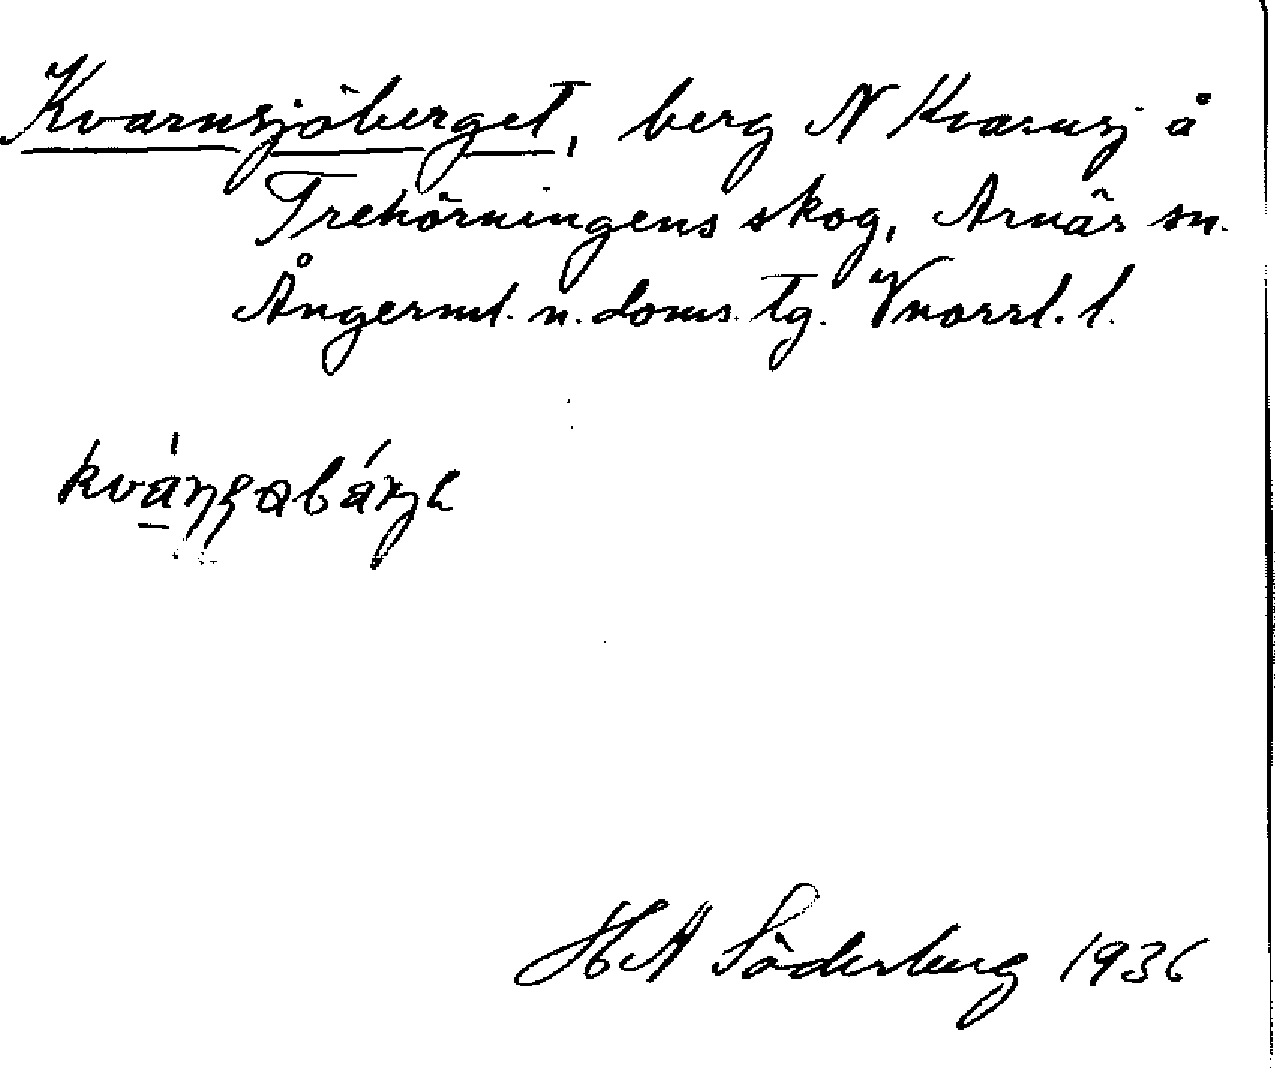 Kvarnsjöberget, berg N Kvarnsj å
Trehörningens skog, Arnäs sn.
Ångerml. n. doms. tg. Vnorrl. l.
H A Söderberg 1936